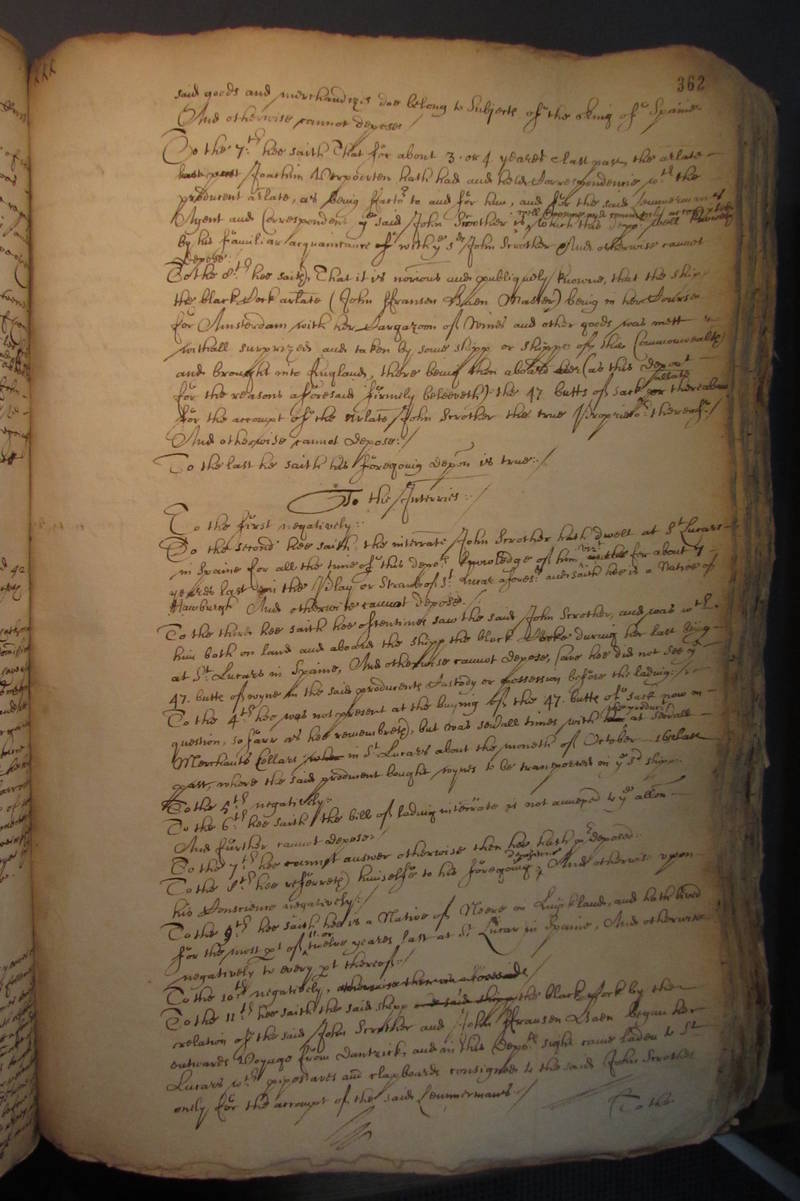 362
said goods and merchandizes doe belong to Subjects of the King of Spaine
And otherwise cannot depose /
To the 7:th hee saith That for about 3. or 4 yeares last past, the arlate
Joachim hath had and held Correspondencie wth the
producent arlate, as being ffactor to and for him, and for the said
Agent and Correspondent ye said John Scrother is well
by his familiar acquaintance of wth ye sd John Scrother And otherwise cannot
depose:
To the 8:th hee saith, That it is notorious and publiquely knowne, that the shipp
the black Cork arlate (John ffransen Master) being in her Course
for Amsterdam with her Cargazoon of Wines and other goods was mett
withall surprized and taken by some shipp or shipps of this Commonwealth
and brought into England, there being then aboard her (as this Depont
for the reasons aforesaid firmely beleeveth) the 47 butts of sack or thereabouts
for the accompt of the arlate John Scrother the true Proprietor thereof:/
And otherwise cannot depose:/
To the last he saith his foregoing depon is true:/
To the Interries:/
To the first negatively:
To the second hee saith the interrate John Scrother hath dwelt at St Lucars
in Spaine for all the time of this depots knowledge of him for about 4
yeares last in the or of St. Lucar aforesd, and saith hee is a Native of
Hamburgh And otherwise cannot depose.
To the third hee saith hee oftentimes saw the said John Scrother, and was wth
him both on land and aboard the shipp the black Corke during her last being
at St. Lucars in Spaine, And otherwise cannot depose, save hee did not see ye
47. butts of wyne in the said producents Custody or possession before the lading:/
To the 4th hee was not present at the buying of the 47. butts of sack now in
question, so farr as hee remembreth, but was severall times with the producent at severall
Merchants Cellars in St Lucars about the moneth of October last
past, where the said producent bought wynes to be transported in ye sd shipp.
To the 5th negatively
To the 6:th hee saith the bill of lading interrate is not annexed to ye allon
And further cannot depose:
To the 7th hee cannot answer otherwise then hee hath predeposed:
To the 8th hee referreth himselfe to his foregoing deposition And otherwise upon
his Conscience negatively:/
To the 9th hee saith hee is a Native of in Luickland, and hath lived
for the most pt of 11 or twelve yeares last at St. Lucar in Spaine, And otherwise
negatively to every pt thereof:/
To the 10th negatively,
To the 11th hee saith the said shipp the black Cork by the
relation of the said John Scrother and John ffransen began her
outwards Voyage from Dantzick, and in this Depots sight came laden to St
Lucars wth pipestaves and clapboards consigned to the said John Scrother
only for the accompt of the said
To the